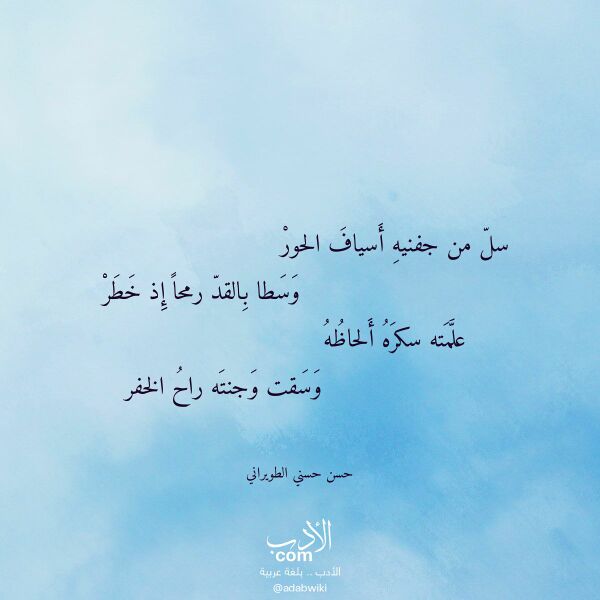 سلّ من جفنيهِ أَسيافَ الحورْ
وَسَطا بِالقدّ رمحاً إِذ خَطَرْ
علَّمَته سكرَهُ أَلحاظُهُ
وَسَقت وَجنتَه راحُ الخفر
حسن حسني الطويراني
الأدب
com
الأدب .. بلغة عربية
@adabwiki